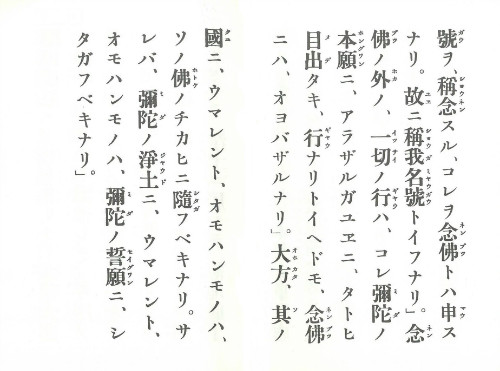 號ヲ、稱念スル、コレヲ念佛トハ申ス
ナリ。故ニ稱我名號トイフナリ」念
佛ノ外ノ、一切ノ行ハ、コレ彌陀ノ
本願ニ、アラザルガユヱニ、タトヒ
目出タキ、行ナリトイヘドモ、念佛
ニハ、オヨバザルナリ」大方、其ノ
國ニ、ウマレント、オモハンモノハ、
ソノ佛ノチカヒニ隨フベキナリ。サ
レバ、彌陀ノ淨土ニ、ウマレント、
オモハンモノハ、彌陀ノ誓願ニ、シ
タガフベキナリ」